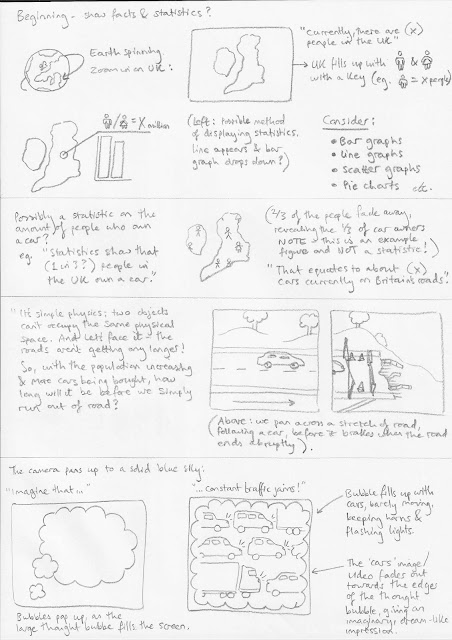 Beginning - show facts & statistics?
Earth spinning
Zoom in on UK:
"Currently, there are (x)
people in the UK"
UK fills up with & 
with a key (eg. = x people)
/ = X million
(Left: possible method
of displaying statistics.
line appears & bar
graph drops down?)
Consider:
• Bar graphs
• Line graphs
• Scatter graphs
• Pie charts etc.
Possibly a statistic on the
amount of people who own
a car?
eg. "Statistics show that
(1 in 3??) people in
the UK own a car."
(2/3 of the people fade away,
revealing the 1/3 of car owners
NOTE - this is an example
figure and NOT a statistic!)
"That equates to about (x)
cars currently on Britain's roads"
"It's simple physics; two objects
can't occupy the same physical
space. And let's face it - the
roads aren't getting any longer!
So, with the population increasing
& more cars being bought, how
long will it be before we simply
run out of road?
(Above: we pan across a stretch of road,
following a car, before it brakes when the road
ends abruptly).
The camera pans up to a solid blue sky:
"Imagine that..."
"...constant traffic jams!"
Bubble fills up with
cars, barely moving,
beeping horns &
flashing lights.
The 'cars' image/
video fades out
towards the edges
of the thought
bubble, giving an
imaginary, dream-like
impression.
Bubbles pop up, as the
large thought bubble fills the screen.